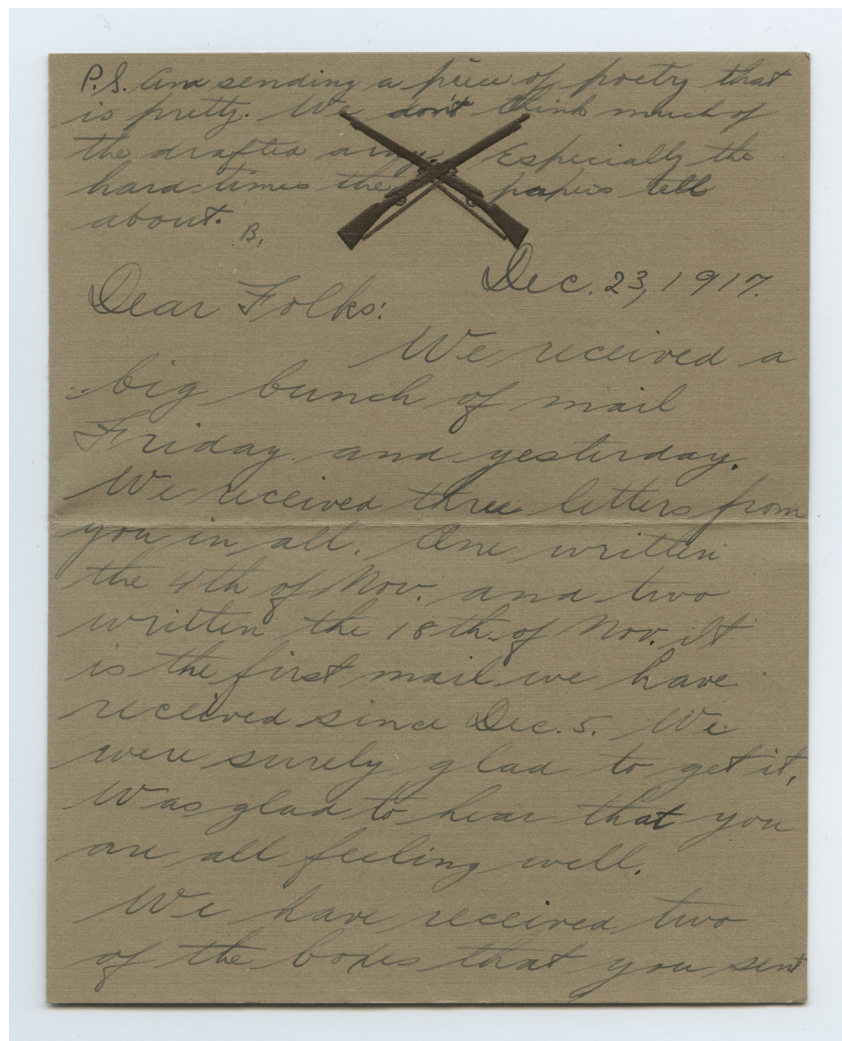 P.S. Am sending a piece of poetry that
is pretty. We don't think much of
the drafted army. Especially the
hard times the papers tell
about. B.
Dec. 23, 1917.
Dear Folks:
We received a
big bunch of mail
Friday and yesterday.
We received three letters from
you in all. One written
the 4th of Nov. and two
written the 18th of Nov. It
is the first mail we have
received since Dec. 5. We
were surely glad to get it,
Was glad to hear that you
are all feeling well.
We have received two
of the boxes that you sent